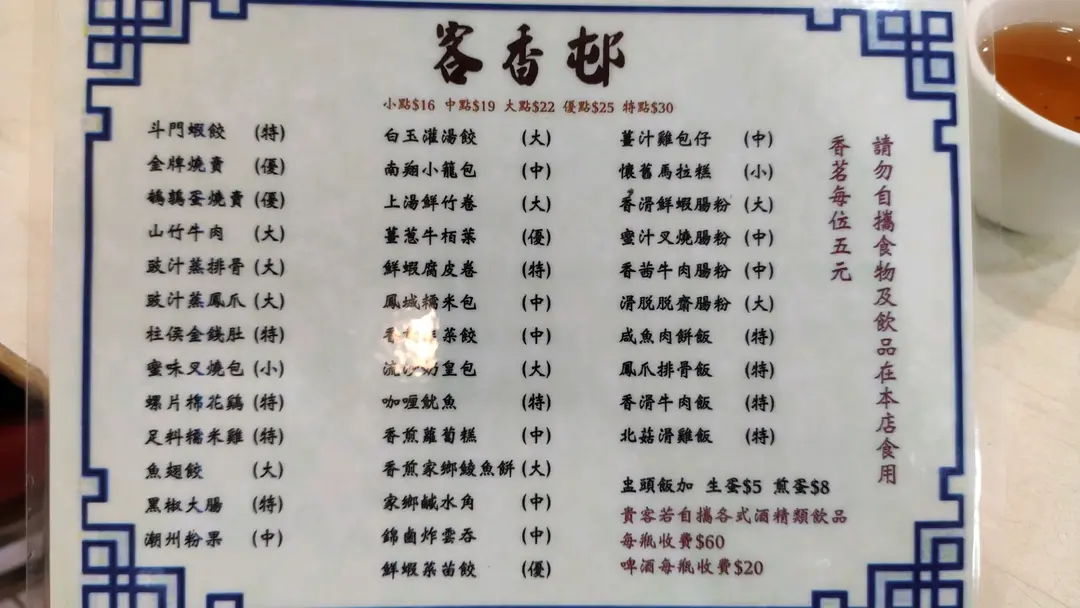 客香邨
小點$16 中點$19 大點$22 優點$25 特點$30
斗門蝦餃 (特)
金牌燒賣 (優)
鵪鶉蛋燒賣 (優)
山竹牛肉 (大)
豉汁蒸排骨 (大)
豉汁蒸鳳爪 (大)
柱侯金錢肚 (特)
蜜味叉燒包 (小)
螺片棉花鷄 (特)
足料糯米雞 (特)
魚翅餃 (大)
黑椒大腸 (特)
潮州粉果 (中)
白玉灌湯餃 (大)
南翔小籠包 (中)
上湯鮮竹卷 (大)
薑蔥牛栢葉 (優)
鮮蝦腐皮卷 (特)
鳳城糯米包 (中)
香 菜餃 (中)
流沙奶皇包 (大)
咖喱魷魚 (特)
香煎蘿蔔糕 (中)
香煎家鄉鯪魚餅 (大)
家鄉鹹水角 (中)
錦鹵炸雲吞 (中)
鮮蝦菜苗餃 (優)
薑汁雞包仔 (中)
懷舊馬拉糕 (小)
香滑鮮蝦腸粉 (大)
蜜汁叉燒腸粉 (中)
香茜牛肉腸粉 (中)
滑脱脱齋腸粉 (大)
咸魚肉餅飯 (特)
鳳爪排骨飯 (特)
香滑牛肉飯 (特)
北菇滑雞飯 (特)
盅頭飯加 生蛋$5 煎蛋$8
貴客若自攜各式酒精類飲品
每瓶收費$60
啤酒每瓶收費$20
請勿自攜食物及飲品在本店食用
香茗每位五元